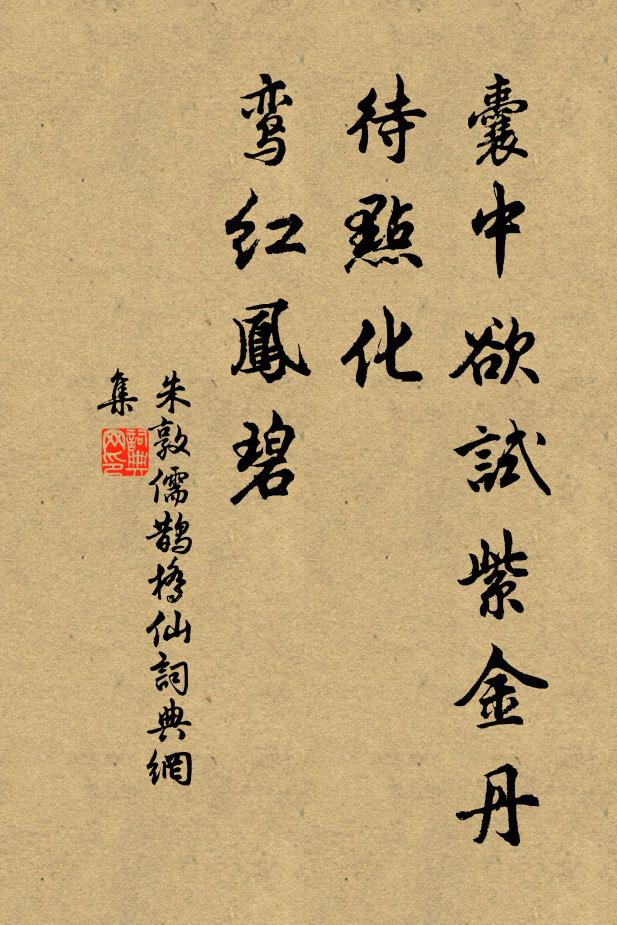 囊中欲試紫金丹
待點化
鸾红鳳碧
朱敦儒鹊橋仙詞典網
集
詞典
网印